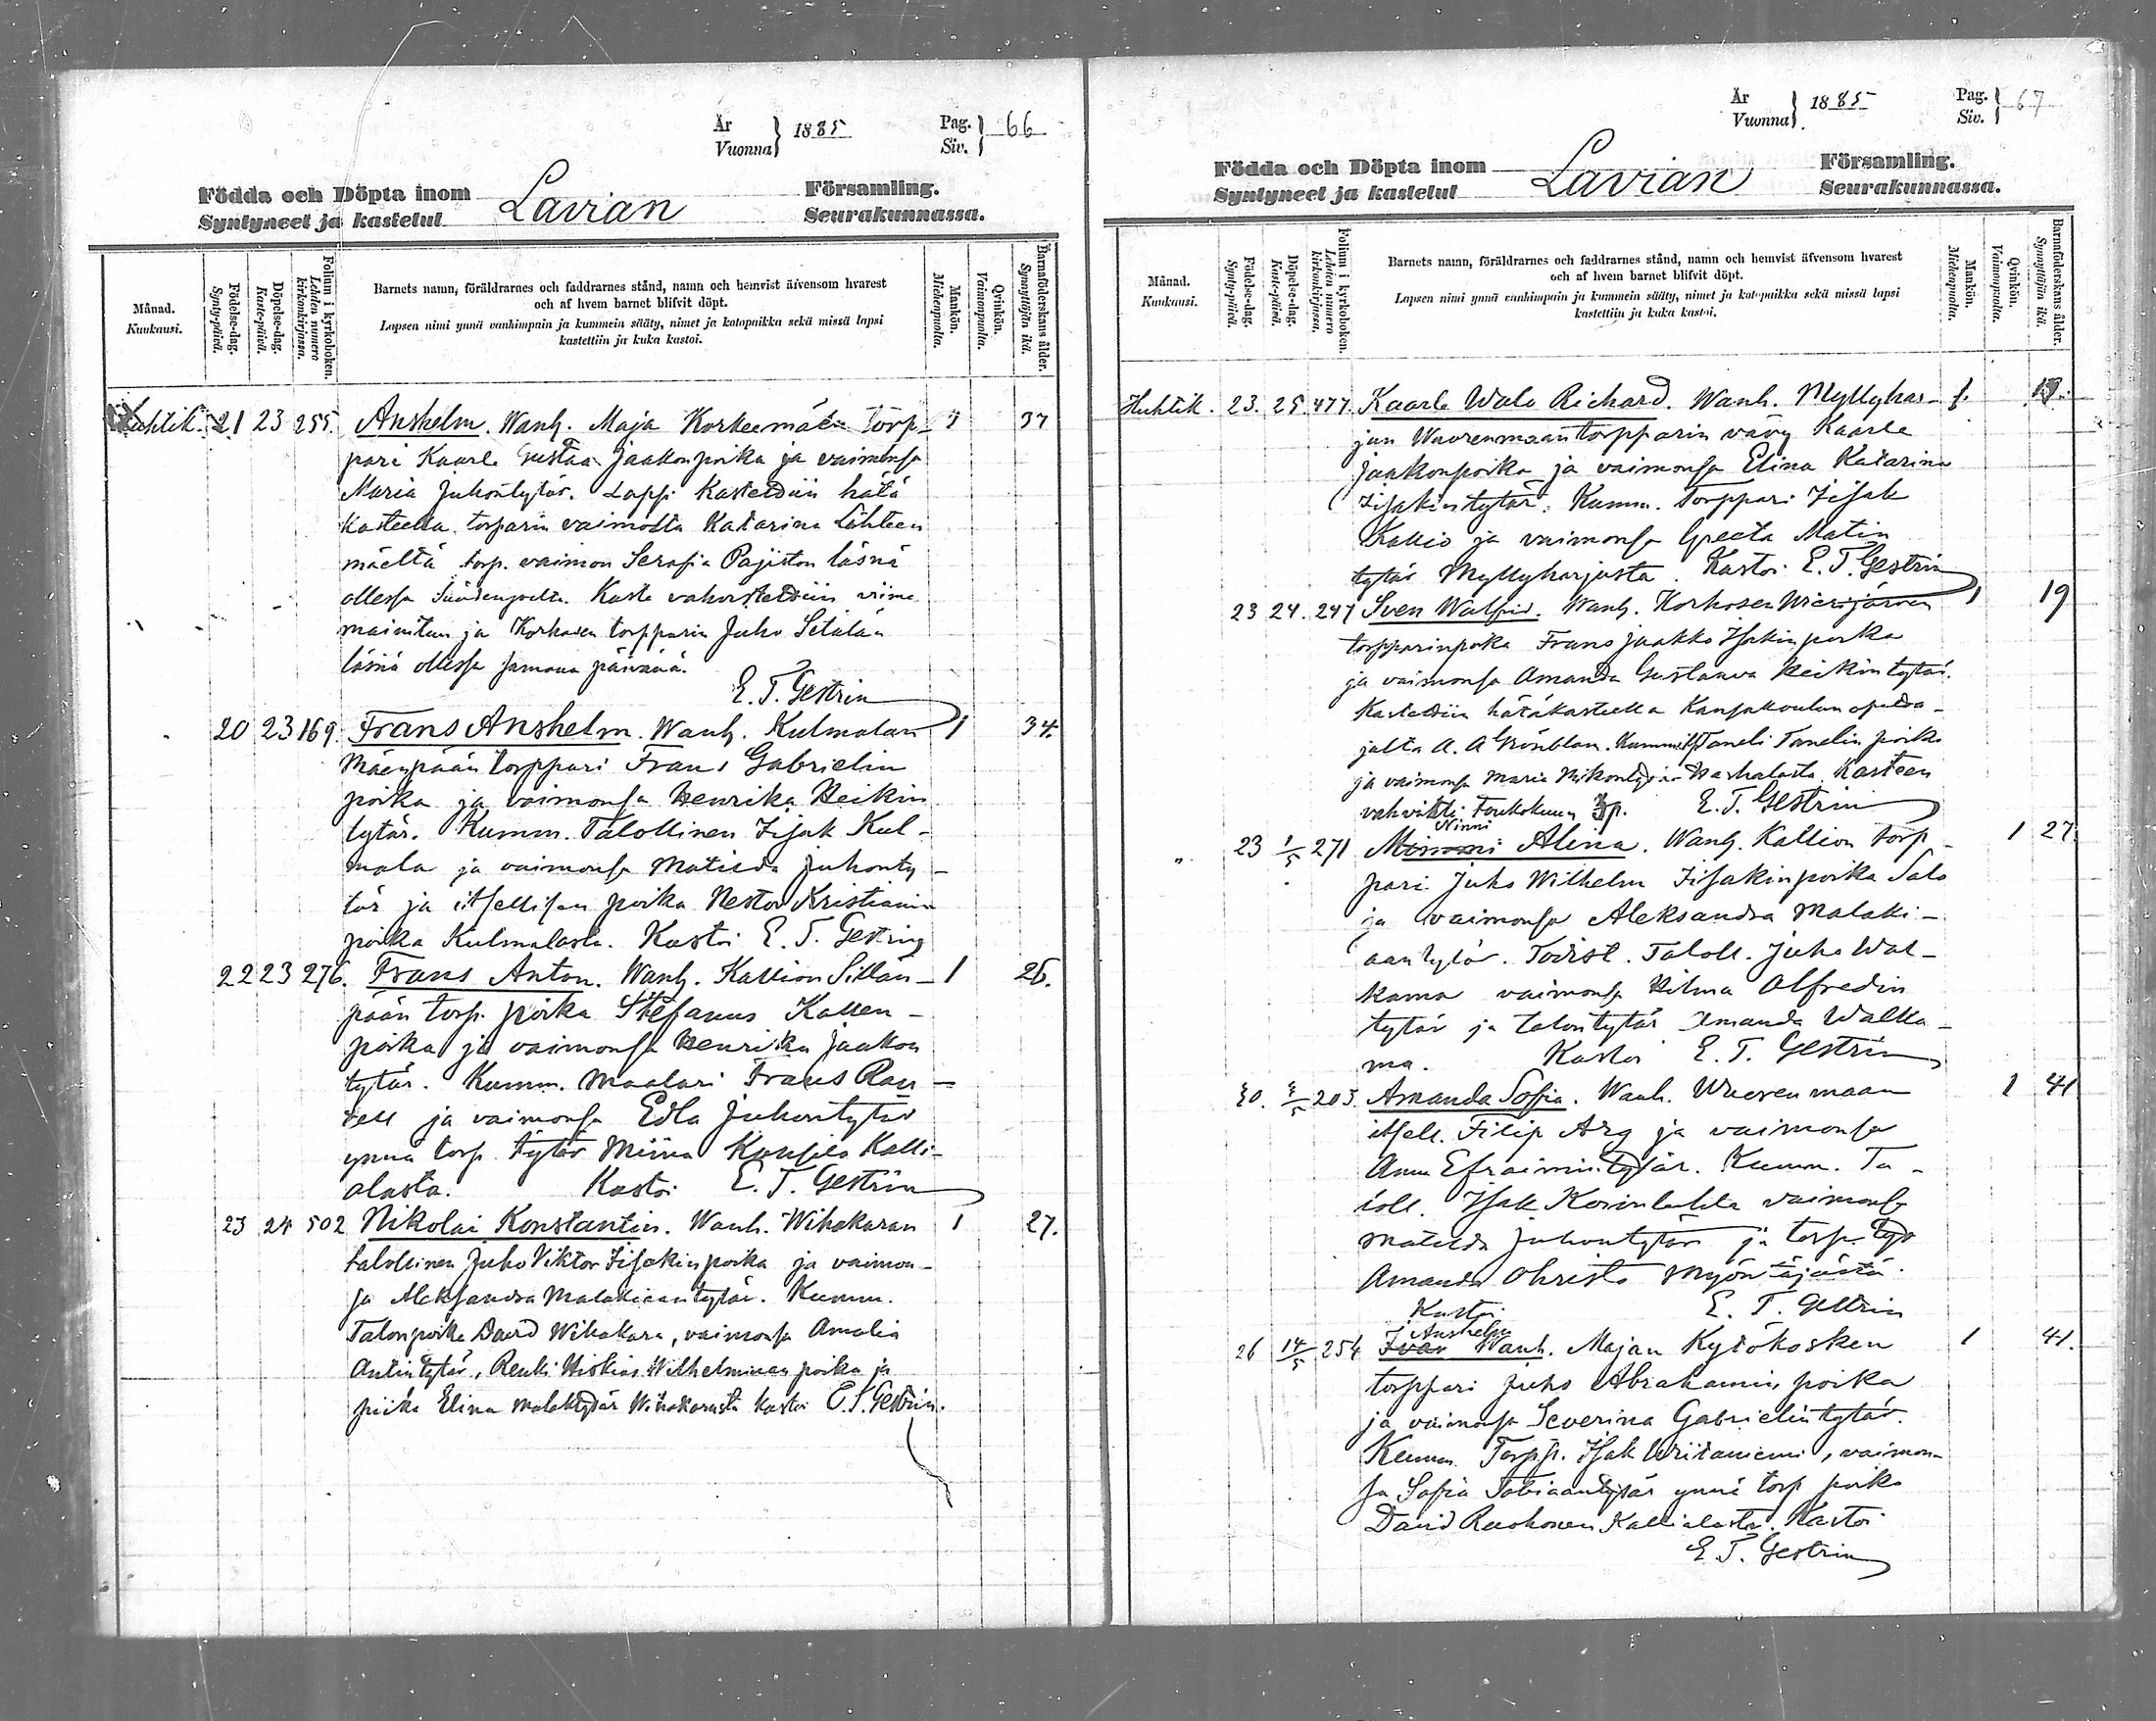 År
Vuonna } 1885 Pag.
Siv. } 66
Födda och Döpta inom Lavian Församling.
Syntyneet ja kastetut Seurakunnassa.
Månad.
Kuukausi.
Födelse-dag.
Synty-päivä.
Döpelse-dag.
Kaste-päivä.
Folium i kyrkoboken.
Lehden numero kirkonkirjassa.
Barnets namn, föräldrarnes och faddrarnes stånd, namn och hemvist äfvensom hvarest
och af hvem barnet blifvit döpt.
Lapsen nimi ynnä vanhimpain ja kummein sääty, nimet ja kotopaikka sekä missä lapsi
kastettiin ja kuka kastoi.
Mankön.
Miehenpuolia.
Qvinkön.
Vaimonpuolia.
Barnaföderskans ålder.
Synnyttäjän ikä.
Huhtik. 21 23 255. Anshelm. Wanh. Maja Korkeemäen torp- 1 37
pari Kaarle Gustaa Jaakonpoika ja vaimonsa
Maria Juhontytär. Lapsi Kastettiin hätä
kasteella torparin vaimolta Katarina Lähteen
mäeltä torp. vaimon Serafia Pajiston läsnä
ollessa Kaste vahvistettiin viime
mainitun ja Korhosen torpparin Juho Setälän
läsnä ollessa samana päivänä.
E. T. Gestrin
20 23 169. Frans Anshelm. Wanh. Kulmalan 1 34.
Mäenpään torppari Frans Gabrielin
poika ja vaimonsa Henrika Heikin
tytär. Kumm. Talollinen Iisak Kul-
mala ja vaimonsa Matilda Juhonty-
tär ja itsellisen poika Nestor Kristianin
poika Kulmalasta. Kastoi E. T. Gestrin
22 23 276. Frans Anton. Wanh. Kallion Sillän- 1 26.
pään torp. poika Stefanus Kallen-
poika ja vaimonsa Henrika Jaakon
tytär. Kumm. Maalari Frans Ran-
tell ja vaimonsa Edla Juhontytär
ynnä torp. tytär Miina Kalli-
alasta. Kastoi E. T. Gestrin
23 24 502 Nikolai Konstantin. Wanh. Wihakaran 1 27.
talollinen Juho Viktor Iisakinpoika ja vaimon-
sa Aleksandra Malakiaantytär. Kumm.
Talonpoika David Wihakara, vaimonsa Amalia
Antintytär, Renki Hiskias Wilhelminan poika ja
piika Elina Malaktytär Wihakarasta Kastoi E. T. Gestrin.
År
Vuonna } 1885 Pag.
Siv. } 67
Födda och Döpta inom Lavian Församling.
Syntyneet ja kastetut Seurakunnassa.
Månad.
Kuukausi.
Födelse-dag.
Synty-päivä.
Döpelse-dag.
Kaste-päivä.
Folium i kyrkoboken.
Lehden numero kirkonkirjassa.
Barnets namn, föräldrarnes och faddrarnes stånd, namn och hemvist äfvensom hvarest
och af hvem barnet blifvit döpt.
Lapsen nimi ynnä vanhimpain ja kummein sääty, nimet ja kotopaikka sekä missä lapsi
kastettiin ja kuka kastoi.
Mankön.
Miehenpuolia.
Qvinkön.
Vaimonpuolia.
Barnaföderskans ålder.
Synnyttäjän ikä.
Huhtik. 23. 25. 477. Kaarle Walo Richard. Wanh. Myllyhar- 1.
jun Wuorenmaan torpparin vävy Kaarle
Jaakonpoika ja vaimonsa Elina Katarina
Iisakintytär. Kumm. Torppari Iisak
Kallio ja vaimonsa Greeta Matin
tytär Myllyharjusta. Kastoi E. T. Gestrin
23 24. 247 Sven Walfrid. Wanh. Korhosen 1 19
torpparinpoika Frans Jaakko Isakinpoika
ja vaimonsa Amanda Gustaava Heikintytär.
Kastettiin hätäkasteella Kansakoulun opetta-
jalta A. A Grönblom. Kummit Taneli Tanelin poika
ja vaimonsa Maria Kasteen
vahvisti Toukokuun 3 p. E. T. Gestrin
Ninni
„ 23 1/5 271 Mimmi Alina. Wanh. Kallion torp- 1 27.
pari Juho Wilhelm Iisakinpoika Salo
ja vaimonsa Aleksandra Malaki-
aantytär. Todist. Taloll. Juho Wal-
kama vaimonsa Hilma Alfredin
tytär ja talontytär Amanda Walka-
ma. Kastoi E. T. Gestrin
203. Amanda Sofia. Wanh. Wuorenmaan 1 41
itsell. Filip Arg ja vaimonsa
Anna Efraimintytär. Kumm. Ta-
loll. Isak vaimonsa
Matilda Juhontytär ja torp. tytr
Amanda
Kastoi E. T. Gestrin
Anshelm
26 14/5 254 Ivar Wanh. Majan Kytökosken 1 41.
torppari Juho Abrahamin poika
ja vaimonsa Severina Gabrielintytär.
Kumm. Torpp. Isak , vaimon-
sa Sofia Tobiaantytär ynnä torp poika
David Ruohonen Kallialasta. Kastoi
E. T. Gestrin